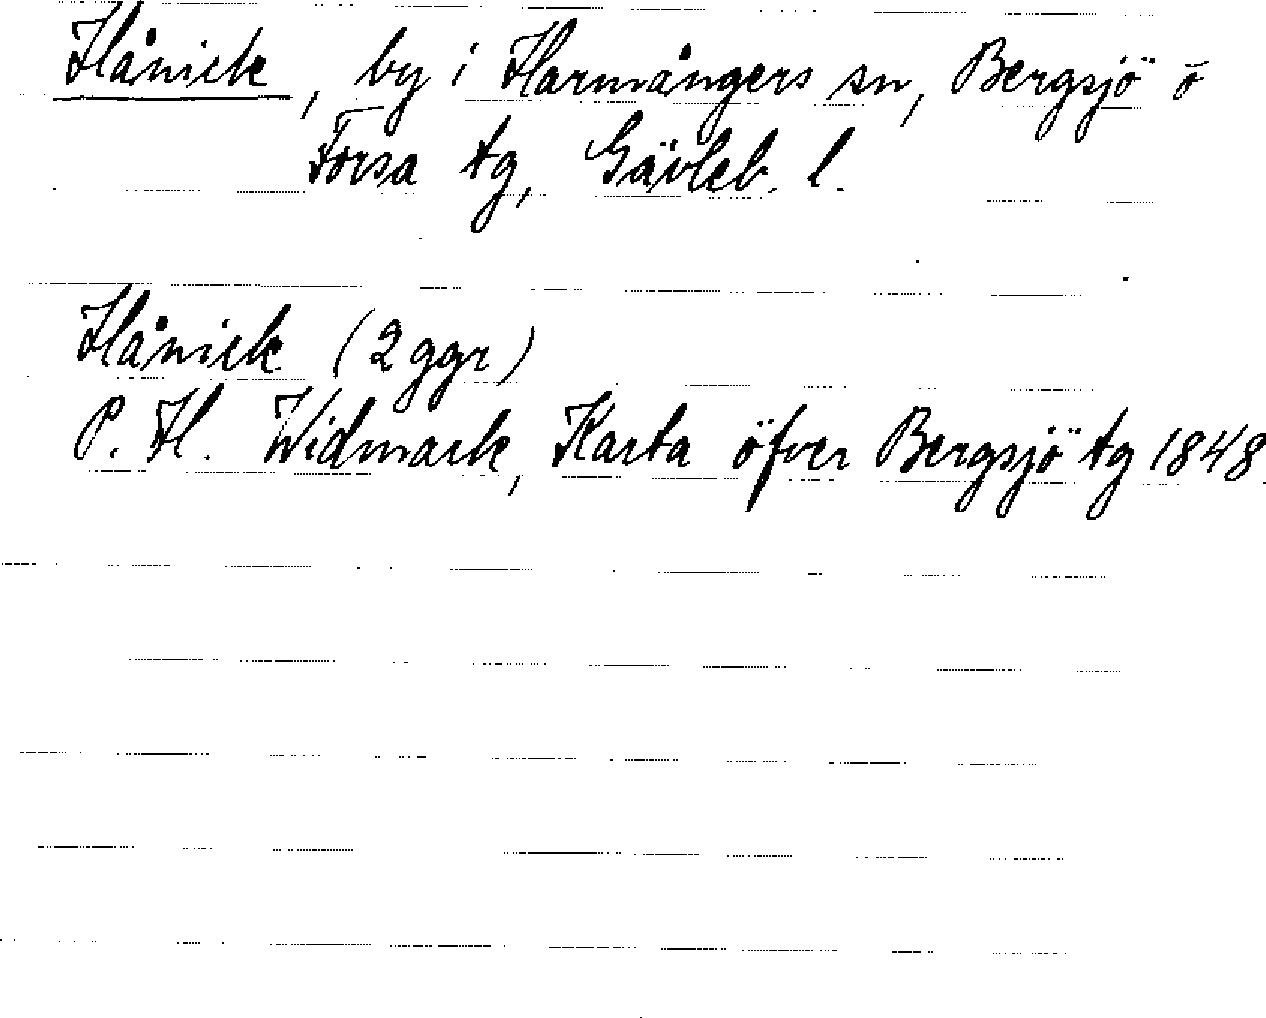 Hånick, by i Harmångers sn, Bergsjö o
Forsa tg, Gävleb. l.
Hånick (2 ggr)
P. H. Widmark, Karta öfver Bergsjö tg 1848